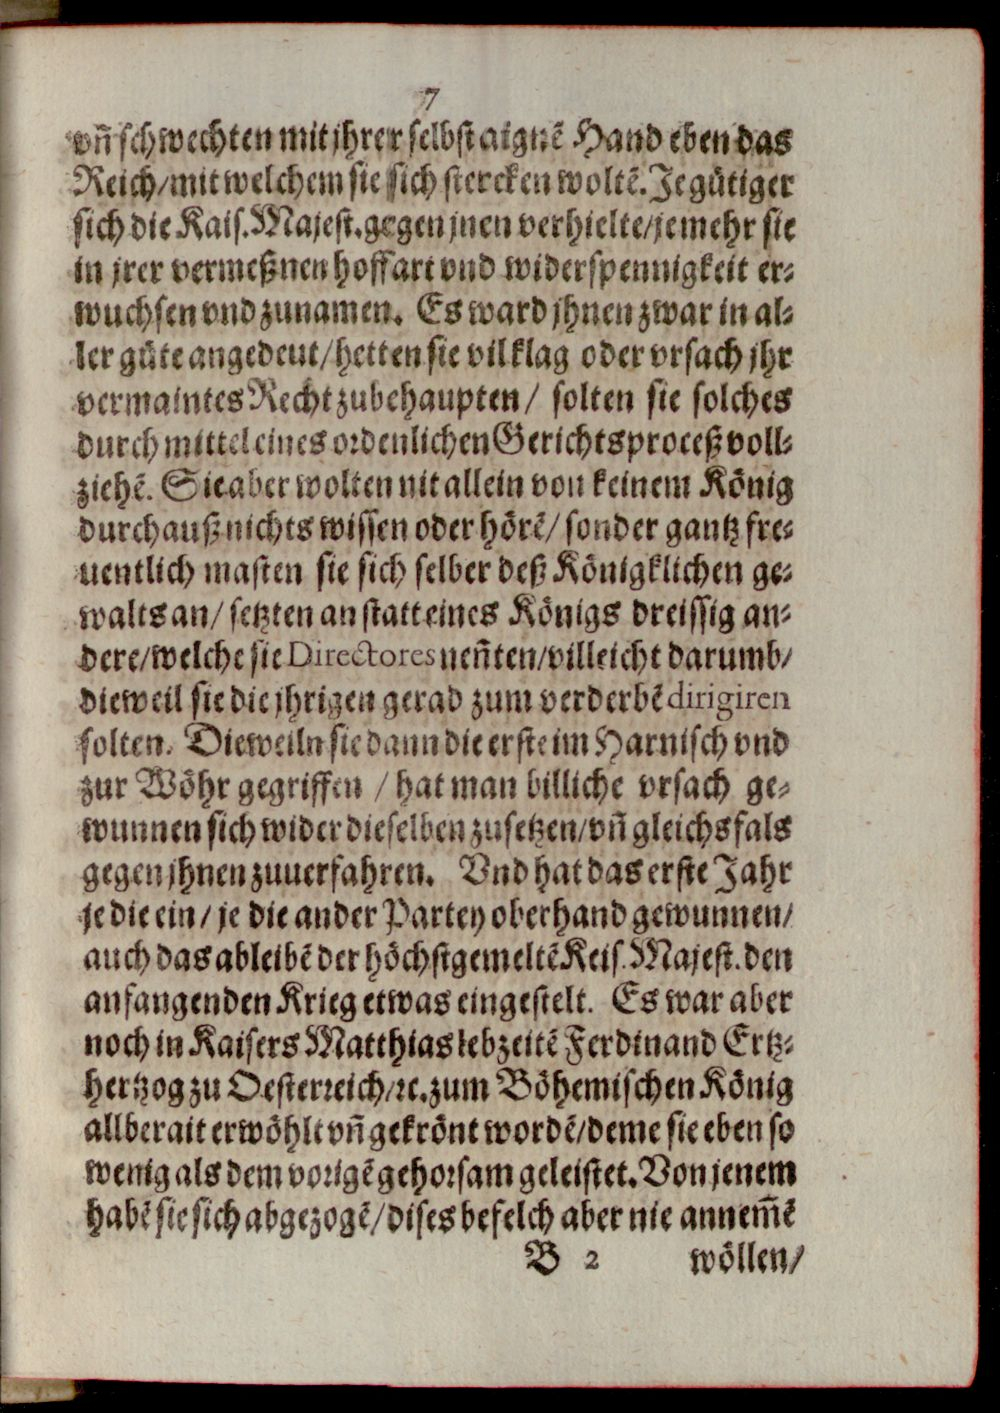 7
vñ schwechten mit jhrer selbst aignẽ Hand eben das
Reich/ mit welchem sie sich stercken woltẽ. Je gütiger
sich die Kais. Majest. gegen jnen verhielte/ je mehr sie
in jrer vermeßnen hoffart vnd widerspennigkeit er-
wuchsen vnd zunamen. Es ward jhnen zwar in al-
ler güte angedeut/ hetten sie vil klag oder vrsach jhr
vermaintes Recht zubehaupten/ solten sie solches
durch mittel eines ordenlichen Gerichtsproceß voll-
ziehẽ. Sie aber wolten nit allein von keinem König
durchauß nichts wissen oder hörẽ/ sonder gantz fre-
uentlich masten sie sich selber deß Königklichen ge-
walts an/ setzten an statt eines Königs dreissig an-
dere/ welche sie Directores neñten/ villeicht darumb/
dieweil sie die jhrigen gerad zum verderbẽ dirigiren
solten. Dieweiln sie dann die erste im Harnisch vnd
zur Wöhr gegriffen / hat man billiche vrsach ge-
wunnen sich wider dieselben zusetzen/ vñ gleichsfals
gegen jhnen zuuerfahren. Vnd hat das erste Jahr
je die ein/ je die ander Partey oberhand gewunnen/
auch das ableibẽ der höchstgemeltẽ Keis. Majest. den
anfangenden Krieg etwas eingestelt. Es war aber
noch in Kaisers Matthias lebzeitẽ Ferdinand Ertz-
hertzog zu Oesterreich/ ꝛc. zum Böhemischen König
allberait erwöhlt vñ gekrönt wordẽ/ deme sie eben so
wenig als dem vorigẽ gehorsam geleistet. Von jenem
habẽ sie sich abgezogẽ/ dises befelch aber nie annem̃ẽ
B 2 wöllen/